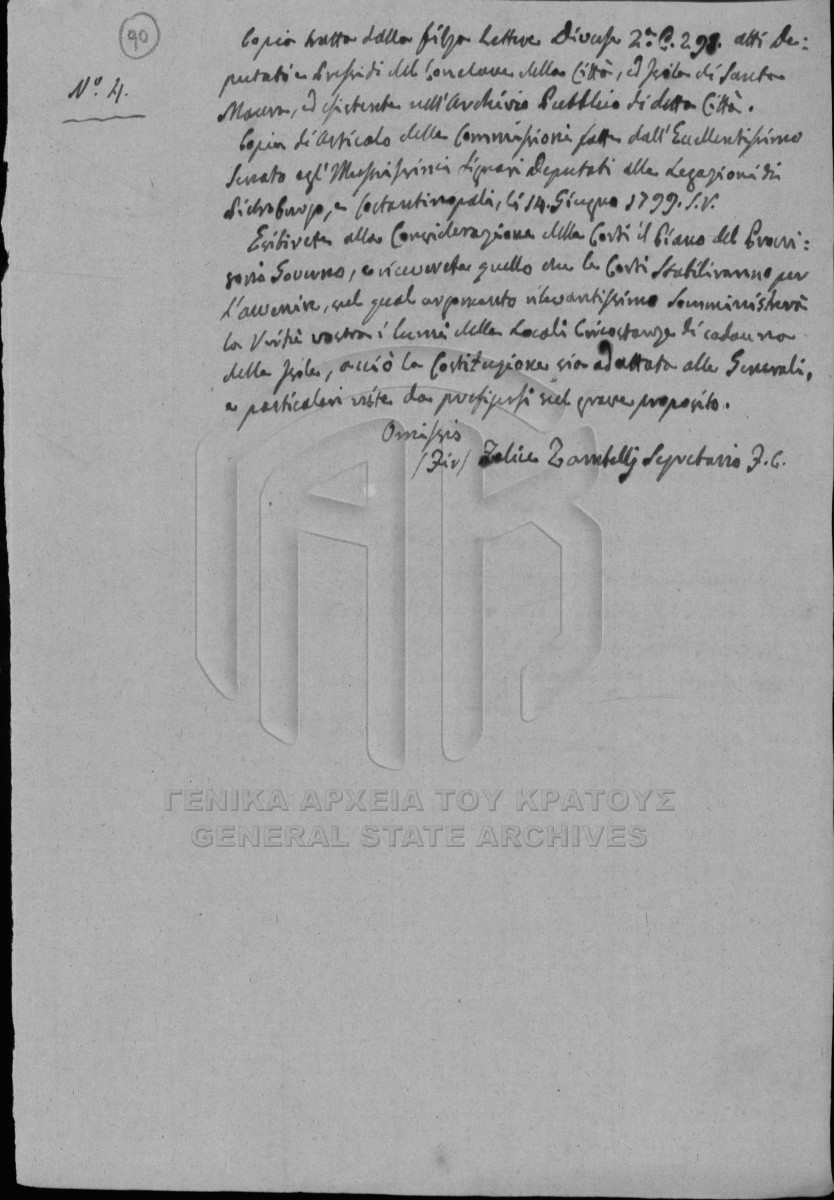 90
N.º 4.
Copia tratta dalla filza Lettere Diverse 2.ª C. 298. atti De=
putati e Presidi del Conclave della Città, ed Isola di Santa
Maura, ed esistente nell'Archivio Pubblico di detta Città.
Copia di Articolo delle Commissioni fatte dall'Eccellentissimo
Senato agl'Illustrissimi Signori Deputati alle Legazioni di
Pietroburgo, e Costantinopoli, li 14. Giugno 1799. S.V.
Esibirete alla Considerazione delle Corti il Piano del Provi=
sorio Governo, e riceverete quello che le Corti stabiliranno per
l'avvenire, nel qual argomento rilevantissimo somministrerà
la Virtù vostra i lumi delle Locali Circostanze di cadauna
delle Isole, acciò la Costituzione sia adattata alle Generali,
e particolari viste da prefigersi nel grave proposito.
Omissis
Felice Zambelli Segretario
ΓΕΝΙΚΑ ΑΡΧΕΙΑ ΤΟΥ ΚΡΑΤΟΥΣ
GENERAL STATE ARCHIVES